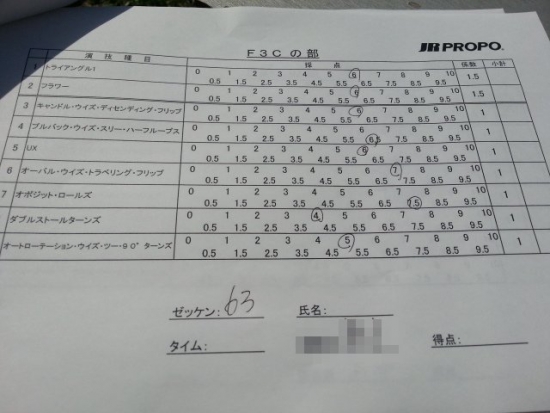 F3Cの部
JR PROPO
演技種目 採点 係数 小計
1 トライアングル1 0 1 2 3 4 5 6 7 8 9 10 1.5
0.5 1.5 2.5 3.5 4.5 5.5 6.5 7.5 8.5 9.5
2 フラワー 0 1 2 3 4 5 6 7 8 9 10 1.5
0.5 1.5 2.5 3.5 4.5 5.5 6.5 7.5 8.5 9.5
3 キャンドル・ウィズ・ディセンディング・フリップ 0 1 2 3 4 5 6 7 8 9 10 1
0.5 1.5 2.5 3.5 4.5 5.5 6.5 7.5 8.5 9.5
4 プルバック・ウィズ・スリー・ハーフループス 0 1 2 3 4 5 6 7 8 9 10 1
0.5 1.5 2.5 3.5 4.5 5.5 6.5 7.5 8.5 9.5
5 UX 0 1 2 3 4 5 6 7 8 9 10 1
0.5 1.5 2.5 3.5 4.5 5.5 6.5 7.5 8.5 9.5
6 オーバル・ウイズ・トラベリング・フリップ 0 1 2 3 4 5 6 7 8 9 10 1
0.5 1.5 2.5 3.5 4.5 5.5 6.5 7.5 8.5 9.5
7 オポジット・ロールズ 0 1 2 3 4 5 6 7 8 9 10 1
0.5 1.5 2.5 3.5 4.5 5.5 6.5 7.5 8.5 9.5
ダブルストールターンズ 0 1 2 3 4 5 6 7 8 9 10 1
0.5 1.5 2.5 3.5 4.5 5.5 6.5 7.5 8.5 9.5
オートローテーション・ウイズ・ツー・90°ターンズ 0 1 2 3 4 5 6 7 8 9 10 1
0.5 1.5 2.5 3.5 4.5 5.5 6.5 7.5 8.5 9.5
ゼッケン: 63 氏名:
タイム: 得点: